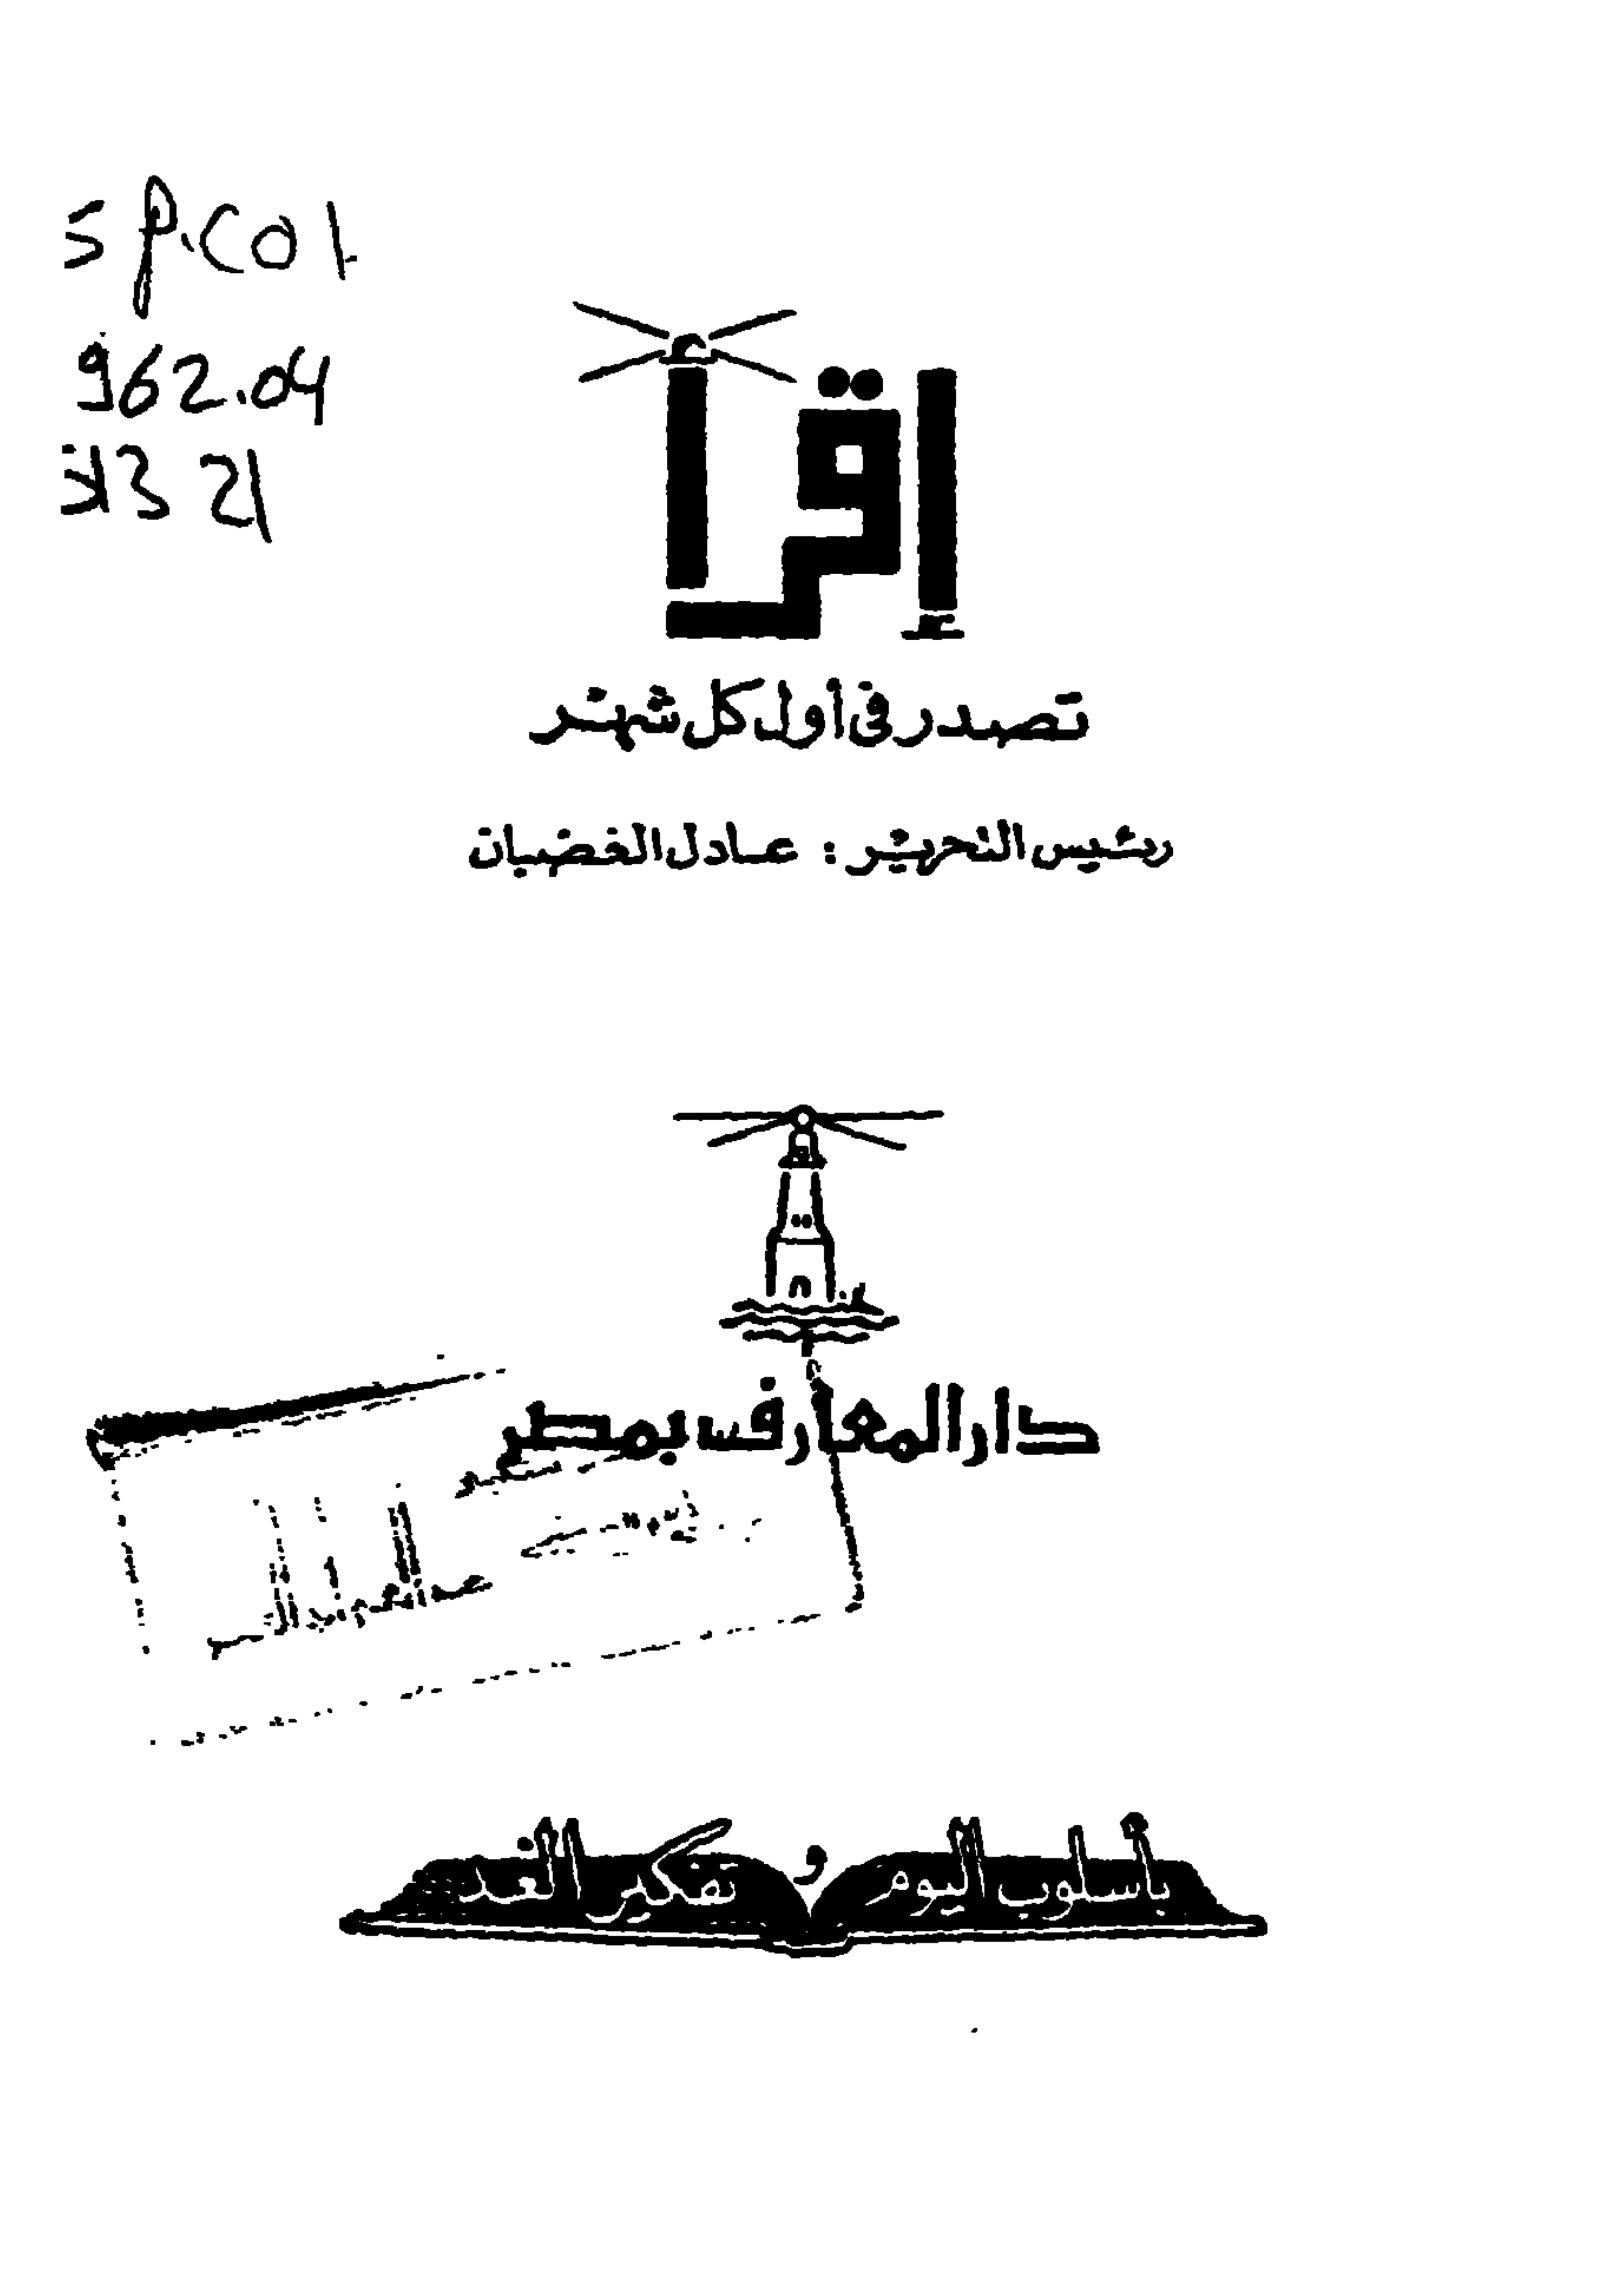 SP.COL
962.04
إقرأ
تصدر فى أول كل شهر
رئيس التحرير : عادل الغضبان
دار المعارف بمصر
أسلوب اليوم و فكر الغد